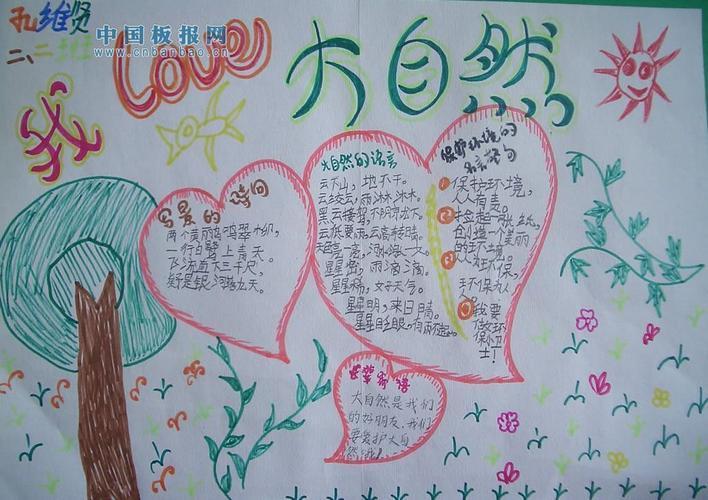 孔维贤
二、二班
中国板报网
www.cnbanbao.cn
我 Love 大自然
写景的诗句
两个黄丽鸟鸣翠柳,
一行白鹭上青天。
飞流直下三千尺,
疑是银河落九天。
大自然的语言
云下山,地不干。
云绞云,雨淋淋。
黑云接驾,不阴就下。
云低要雨,云高转晴。
星星密,雨滴滴。
星星稀,好天气。
星星明,来日晴。
星星眨眼,有雨不远。
保护环境的
名言警句
1 保护环境,
人人有责。
2 捡起一张纸,
创造一个美丽
的环境。
3 人人环保,
环保为
人人。
4 我要
做环
保小卫
士!
大自然是我们
的好朋友,我们
要爱护大自